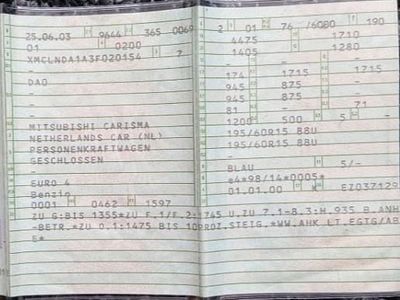 25.06.03 9644 365 0069
01 0200
XMCLNDA1A3F020154 7
DAO
-
-
MITSUBISHI CARISMA
NETHERLANDS CAR (NL)
PERSONENKRAFTWAGEN
GESCHLOSSEN
-
EURO 4
Benzin
0001 0462 1597
2 01 76 /6080 190
4475 1710
1405 1280
- - -
174 1715 1715
945 875 -
945 875 -
81 - 71
1200 500 5 -
195/60R15 88U
195/60R15 88U
-
BLAU 5/-
e4*98/14*0005*
01.01.00 EZ037129
ZU G:BIS 1355*ZU F.1/F.2:1745 U.ZU 7.1-8.3:H.935 B.ANH
-BETR.*ZU O.1:1475 BIS 10PROZ.STEIG.*WW.AHK LT.EGTG/AB
E*